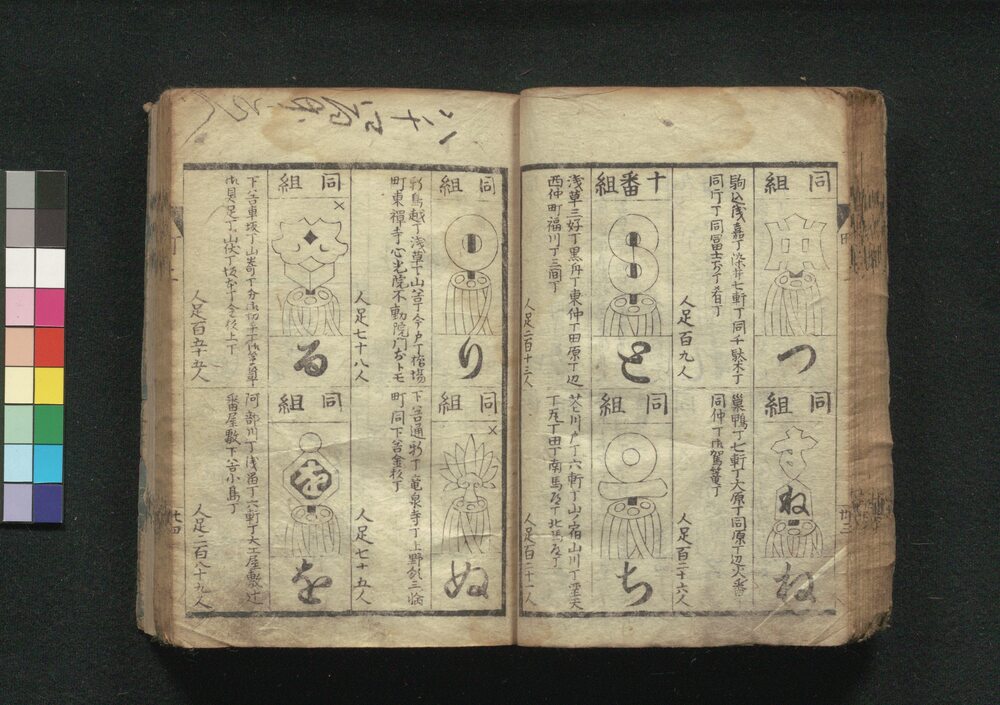 同組
つ
駒込浅嘉丁染井七軒丁同千駄木丁
同行丁同富士前丁肴丁
人足百九人
同組
ね
ね
巣鴨丁七軒丁大原丁同原丁辺火番
同仲丁御駕籠丁
人足百二十六人
十番組
と
浅草三好丁黒舟丁東仲丁田原丁辺
西仲町福川丁三間丁
人足二百十三人
同組
ち
芝川戸丁六軒丁山ノ宿山川丁聖天
丁瓦丁田丁南馬道丁北馬道丁
人足百二十一人
同組
り
新鳥越丁浅草丁山谷丁今戸丁橋場
町東禅寺心光院不動院門前トモ
人足七十八人
同組
ぬ
下谷通新丁竜泉寺丁上野領三
町同下谷金杉丁
人足七十五人
同組
る
下谷車坂丁山崎丁
御具足丁山伏丁坂本丁金杉上丁
人足百五十五人
同組
を
阿部川丁浅留丁六軒丁大工屋敷辻
番屋敷下谷小島丁
人足二百八十九人
廿三
廿四